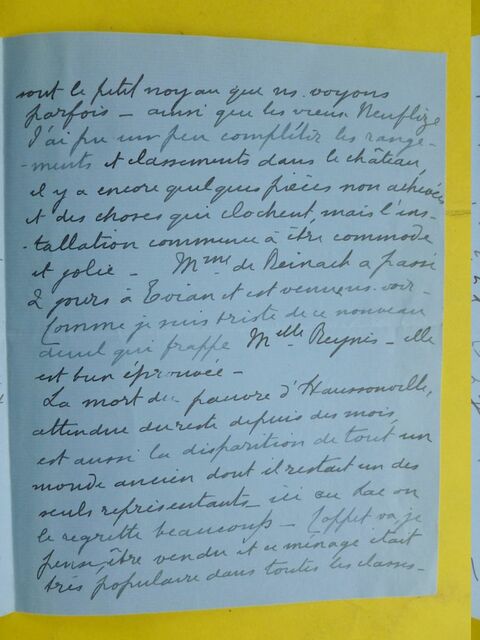 sont le petit noyau que ns. voyons
parfois - ainsi que les vieux Neuflize
J'ai pu un peu compléter les range-
-ments et classements dans le château,
il y a encore quelques pièces non achevées
et des choses qui clochent, mais l'ins-
-tallation commence à être commode
et jolie - Mme de Reinach a passé
2 jours à Evian et est venue ns. voir -
Comme je suis triste de ce nouveau
deuil qui frappe Melle Reynis - elle
est bien éprouvée -
La mort du pauvre d'Haussonville,
attendue du reste depuis des mois,
est aussi la disparition de tout un
monde ancien dont il restait un des
seuls représentants - ici au Lac on
le regrette beaucoup - Coppet va je
pense être vendu et ce ménage était
très populaire dans toutes les classes -